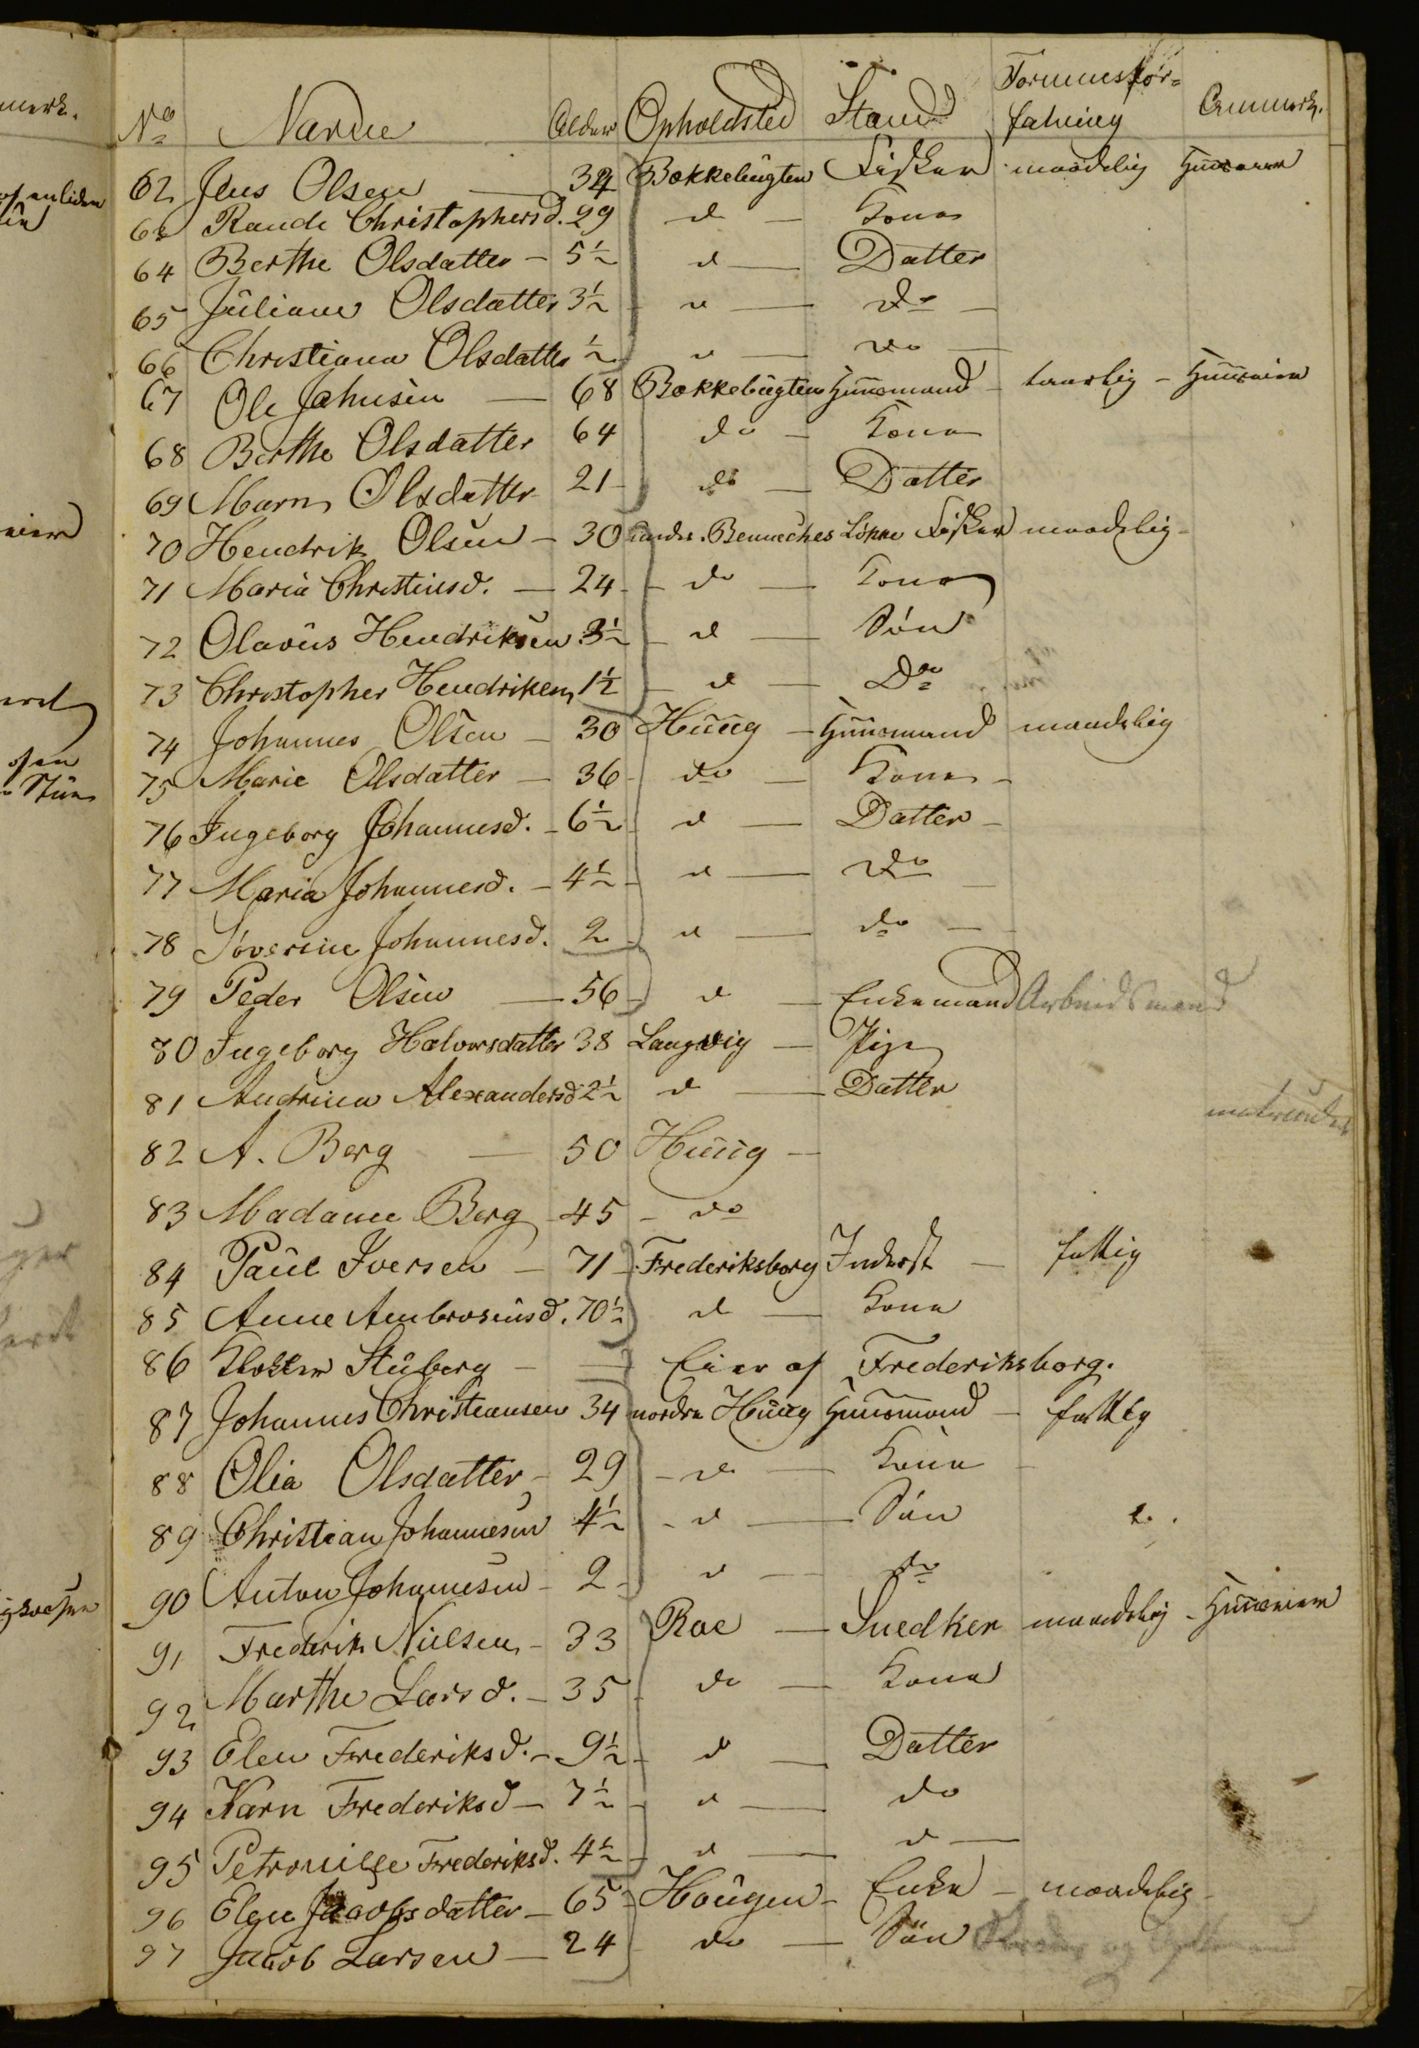 No Navne Alder Opholdsted Stand Formuesforfatning Anmerk.
62 Jens Olsen — 34 Bokkebugten Fisker maadelig Huuseier
63 Rande Christophersd. 29 d — Kone
64 Berthe Olsdatter — 5½ d — Datter
65 Juliane Olsdatter 3½ d — do —
66 Christiana Olsdatter ½ d — do —
67 Ole Johnsen — 68 Bokkebugten Huusmand — — Huuseier
68 Berthe Olsdatter 64 do — Kone
69 Marn Olsdatter 21 — do — Datter
70 Hendrik Olsen — 30 under Benneches Løkke Fisker maadelig —
71 Maria Christensd. — 24 — do — Kone
72 Olavus Hendriksen 3½ — d — Søn
73 Christopher Hendriksen 1½ — d — Do
74 Johannes Olsen — 30 Huug — Huusmand maadelig
75 Marie Olsdatter — 36 — do — Kone —
76 Ingeborg Johannesd. — 6½ — d — Datter —
77 Maria Johannesd. — 4½ — d — do —
78 Søverine Johannesd. 2 — d — do —
79 Peder Olsen — 56 — d — Enkemand Arbeidsmand
80 Ingeborg Halvorsdatter 38 Langvig — Pige
81 Andrina Alexandersd. 2½ d — Datter
82 A. Berg — 50 Huug —
83 Madame Berg — 45 — do
84 Paul Iversen — 71 — Frederiksborg Inderst — fattig
85 Anne Ambrosiusd. 70½ d — Kone
86 Stuberg — — Eier af Frederiksborg.
87 Johannes Christiansen 34 nordre Huug Huusmand — fattig
88 Olia Olsdatter — 29 — d — Kone —
89 Christian Johannesen 4½ — d — Søn
90 Anton Johannesen — 2 — d — do
91 Frederik Nielsen — 33 Roe — Snedker maadelig — Huuseier
92 Marthe Larsd. — 35 — do — Kone
93 Elen Frederiksd. — 9½ — d — Datter
94 Karn Frederiksd — 7½ — d — do
95 Petronille Frederiksd. 4½ — d — d —
96 Elen Jacobsdatter — 65 — Hougen — Enke — maadelig —
97 Jacob Larsen — 24 do — Søn